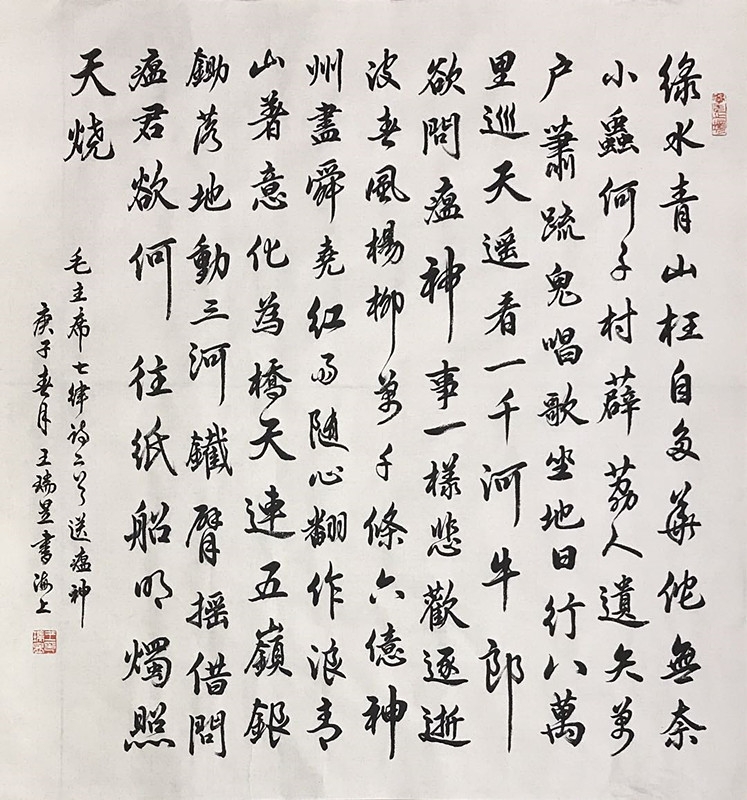 綠水青山枉自多華佗無奈
小蟲何千村薜荔人遺矢萬
户蕭疏鬼唱歌坐地日行八萬
里巡天遥看一千河牛郎
欲問瘟神事一樣悲歡逐逝
波春風楊柳萬千條六億神
州盡舜堯紅雨隨心翻作浪青
山著意化為橋天連五嶺銀
鋤落地動三河鐵臂摇借問
瘟君欲何往紙船明燭照
天烧
毛主席七律詩二首送瘟神
庚子春月王瑞昱書海上